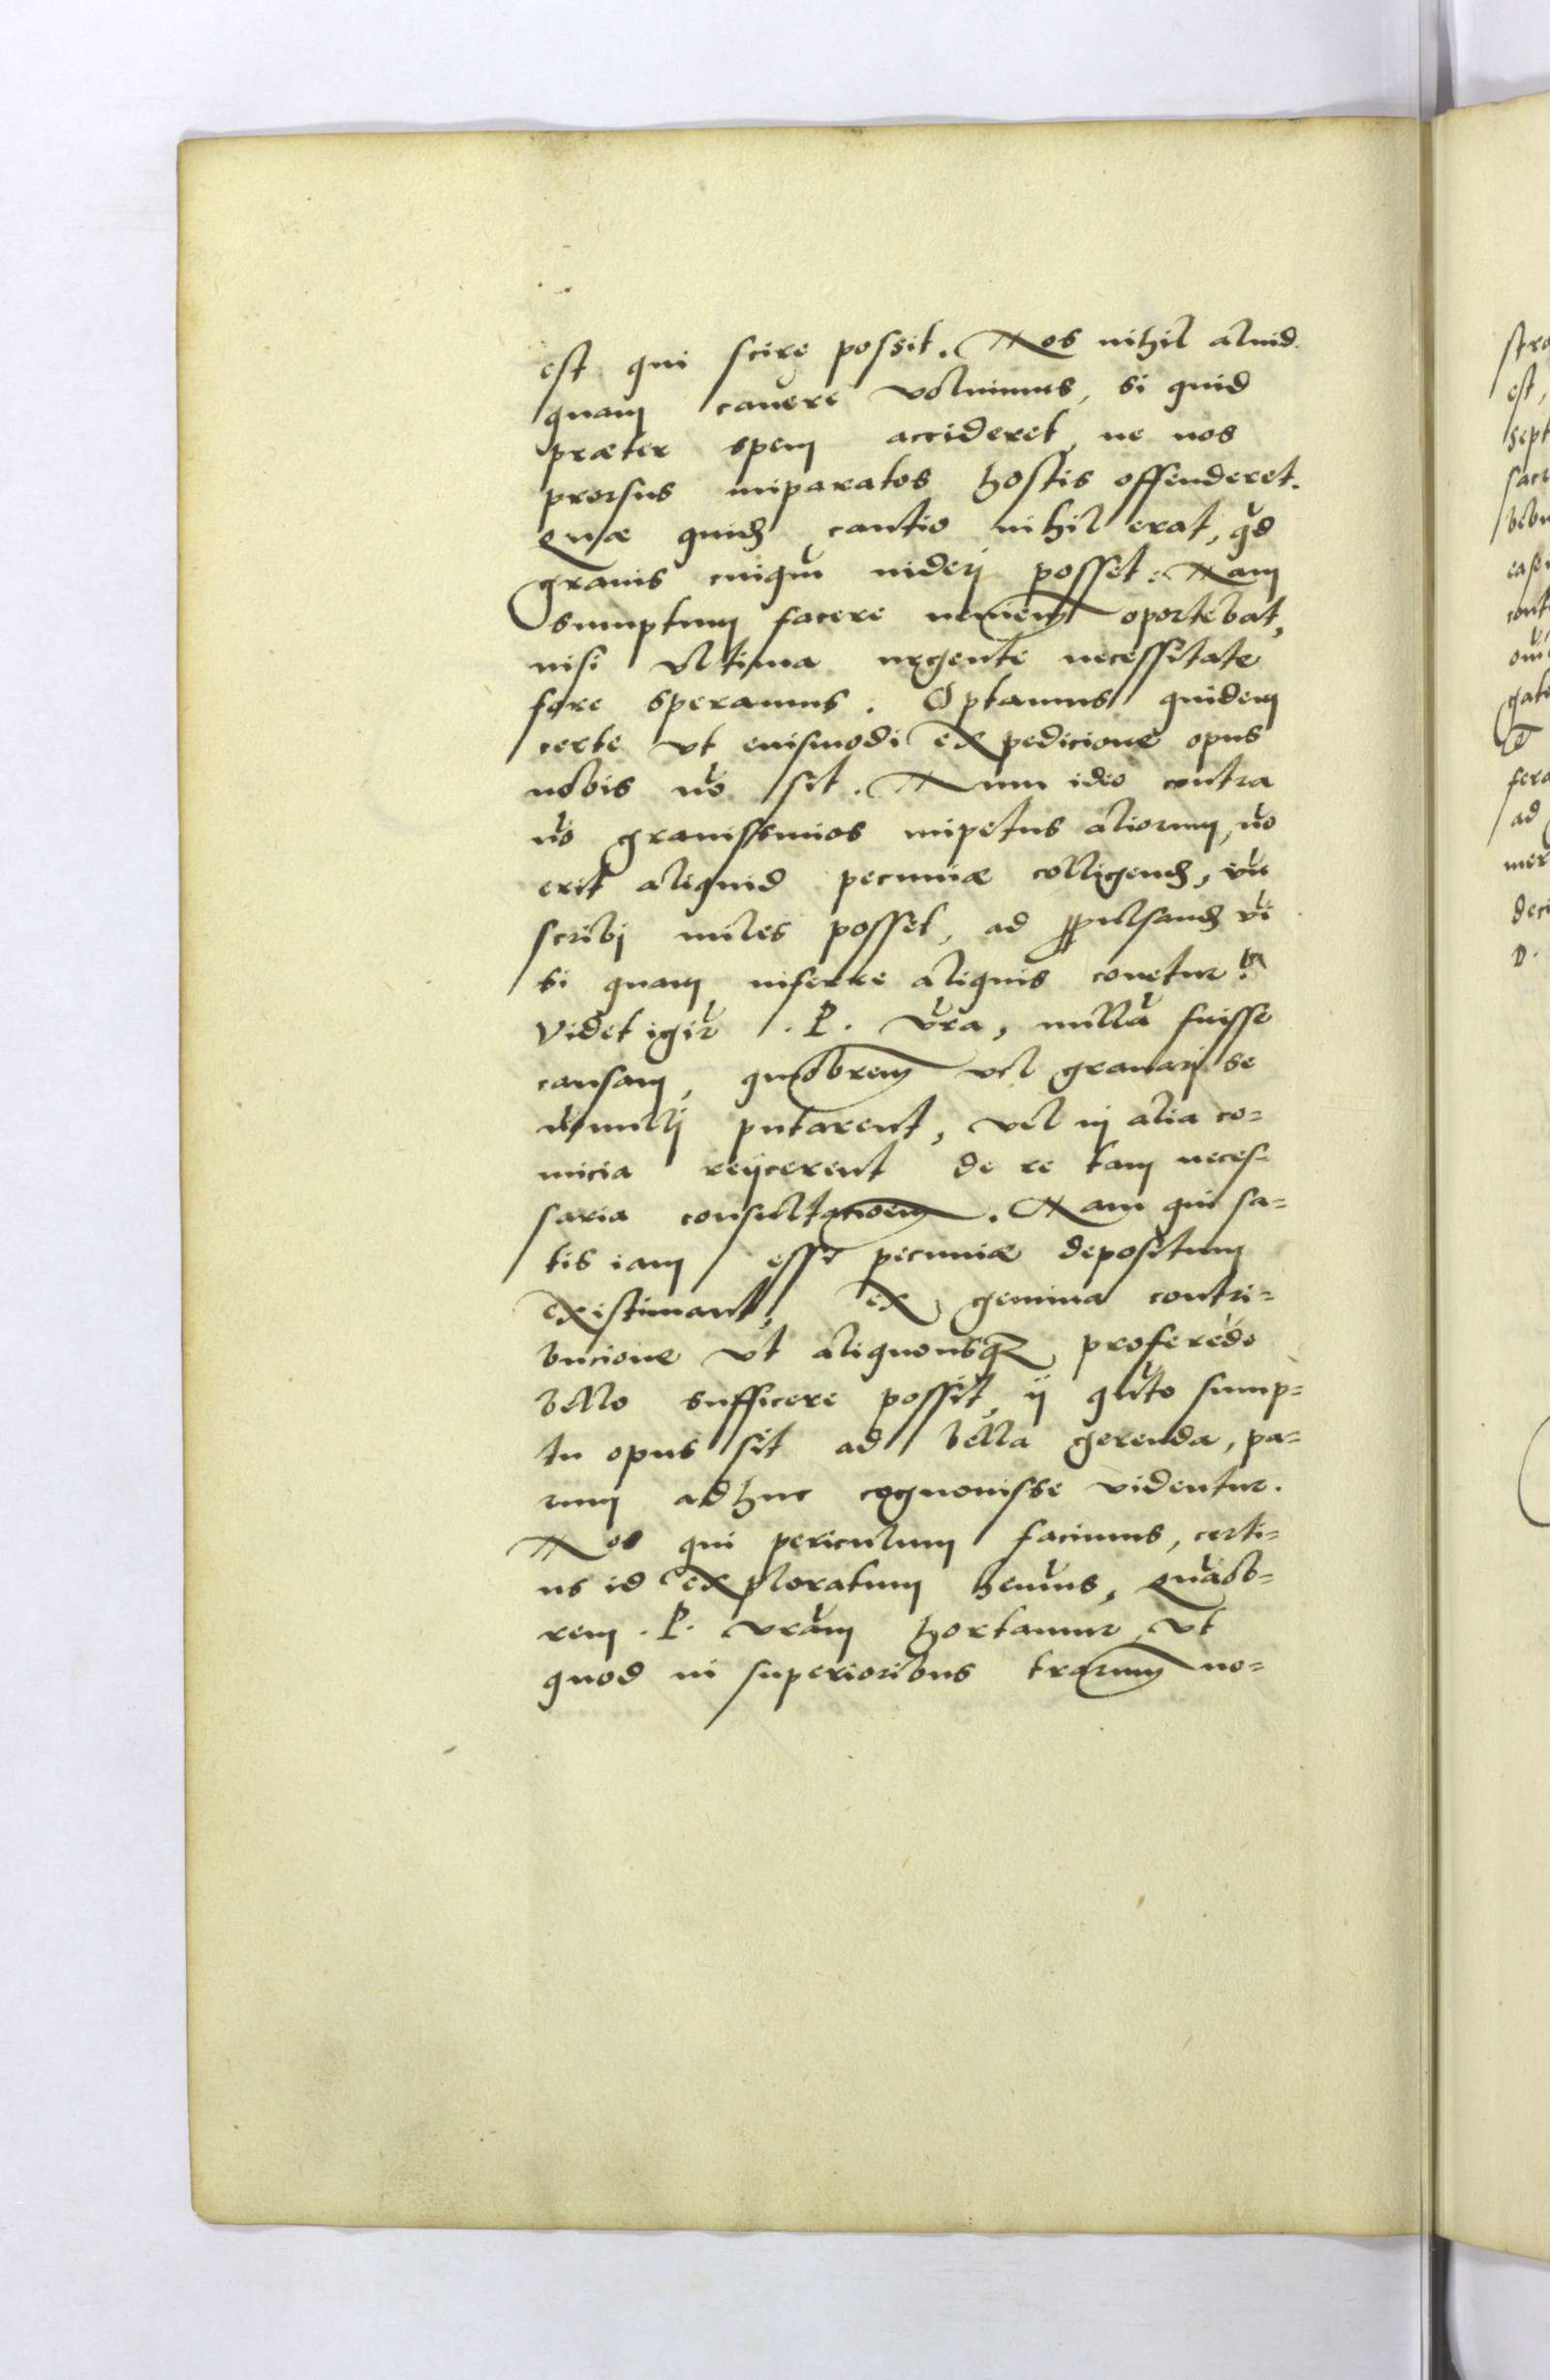 est qui scire possit. Nos nihil aliud
quam cavere voluimus, si quid
præter spem accideret, ne nos
prorsus imparatos hostis offenderet.
Quæ quidẽ cautio nihil erat, qd̃
gravis cuiquã videri posset. Nam
sumptum facere neminem oportebat,
nisi ultima urgente necessitate
fore speramus. Optamus quidem
certe ut eiusmodi expedicione opus
nobis nõ sit. Num ideo contra
nõ gravissimos impetus aliorum, nõ
erit aliquid pecuniæ colligendũ, vñ
scribi miles posset, ad ꝓpulsandã vĩ
si quam inferre aliquis conetur?
Videt igir̃ .P. vr̃a, nullã fuisse
causam, quãobrem vel gravari se
nõnulli putarent, vel in alia co=
micia reijcerent de re tam neces=
saria consultacõem. Nam qui sa=
tis iam esse pecuniæ depositum
existimant, ex gemina contri=
bucione ut aliquousqꝫ proferẽdo
bello sufficere possit, ij quãto sump=
tu opus sit ad bella gerenda, pa=
rum adhuc cognovisse videntur.
Nos qui periculum facimus, certi=
us id exploratum hem̃us, Quãob=
rem .P. vrãm hortamur, ut
quod in superioribus lrarum no=